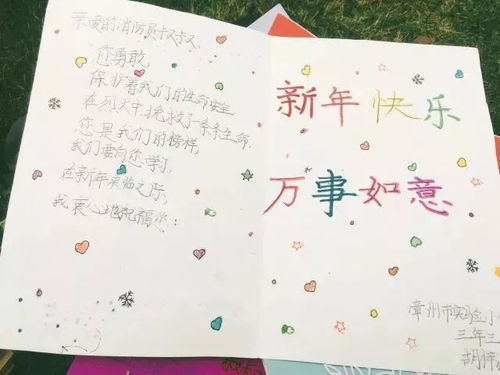 亲爱的消防员叔叔,
您勇敢,
保护着我们的生命安全
在烈火中,挽救了一条条生命,
您是我们的榜样,
我们要向您学习,
在新年来临之际,
我衷心地祝福您:
新年快乐
万事如意
漳州市实验小
三年三
胡